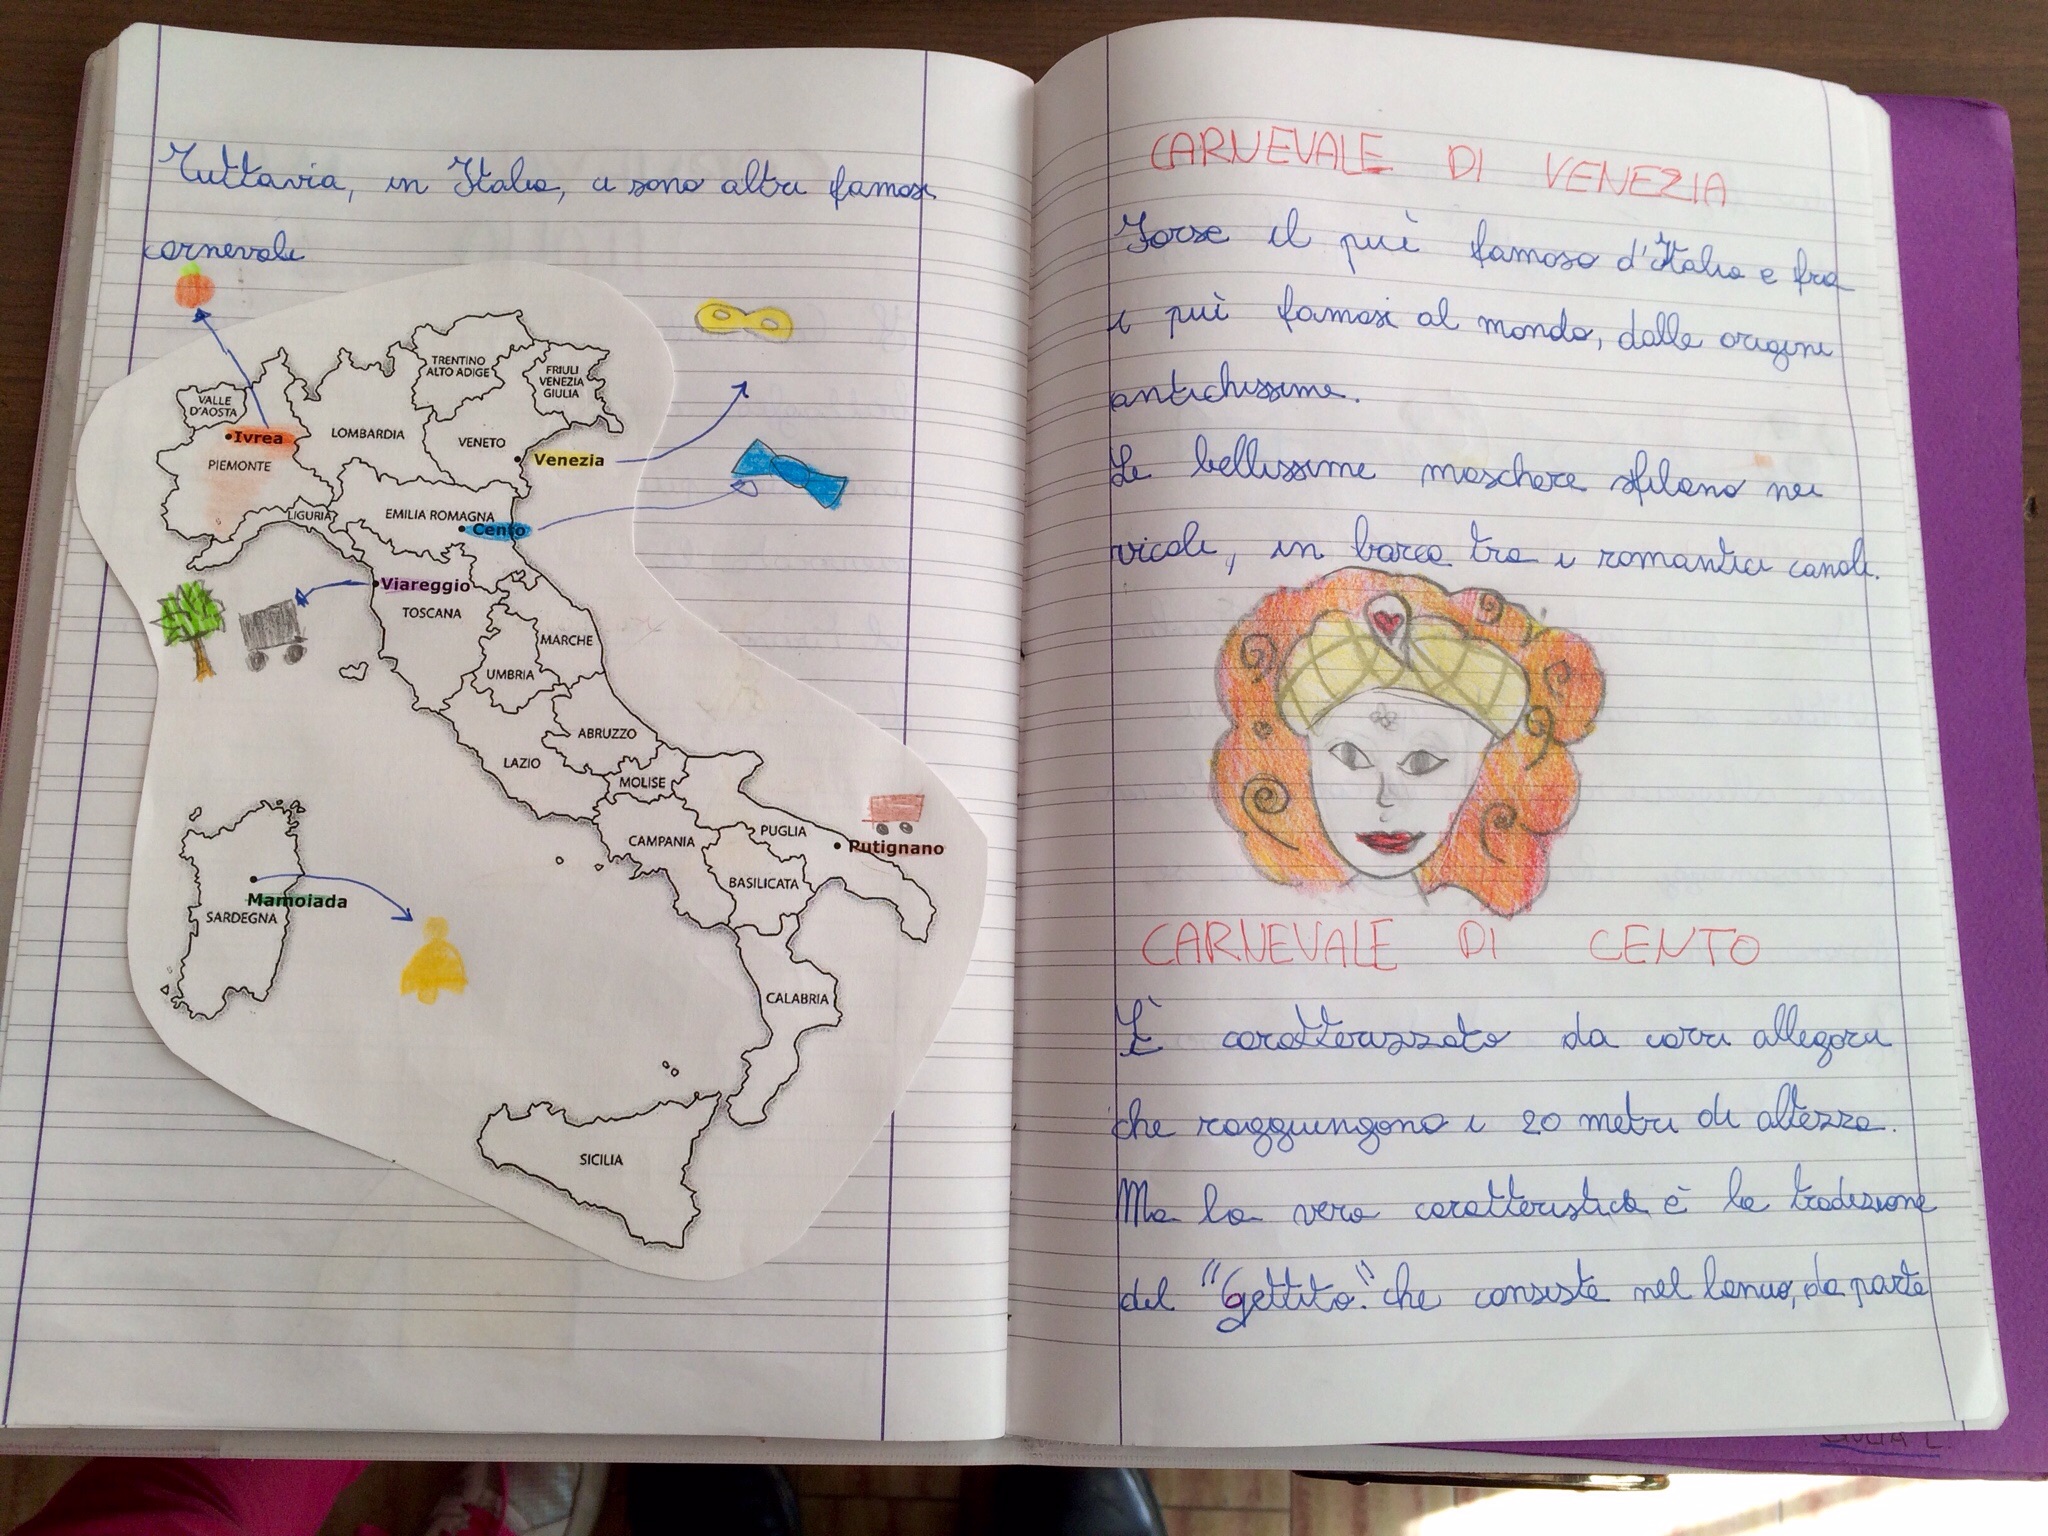 Tuttavia, in Italia, ci sono altri famosi
carnevali
TRENTINO
ALTO ADIGE
FRIULI
VENEZIA
GIULIA
VALLE
D'AOSTA
LOMBARDIA
VENETO
Ivrea
Venezia
PIEMONTE
EMILIA ROMAGNA
LIGURIA
Cento
Viareggio
TOSCANA
MARCHE
UMBRIA
ABRUZZO
LAZIO
MOLISE
PUGLIA
CAMPANIA
Putignano
BASILICATA
Mamoiada
SARDEGNA
CALABRIA
SICILIA
CARNEVALE DI VENEZIA
Forse il puì famoso d'Italia e fra
i puì famosi al mondo, dalle origini
antichissime.
Le bellissime maschere sfilano nei
vicoli, in barca tra i romantici canali.
CARNEVALE DI CENTO
È caratterizzato da carri allegorici
che raggiungono i 20 metri di altezza.
Ma la vera caratteristica è la tradizione
del "Gettito" che consiste nel lancio, da parte
GIULIA L.